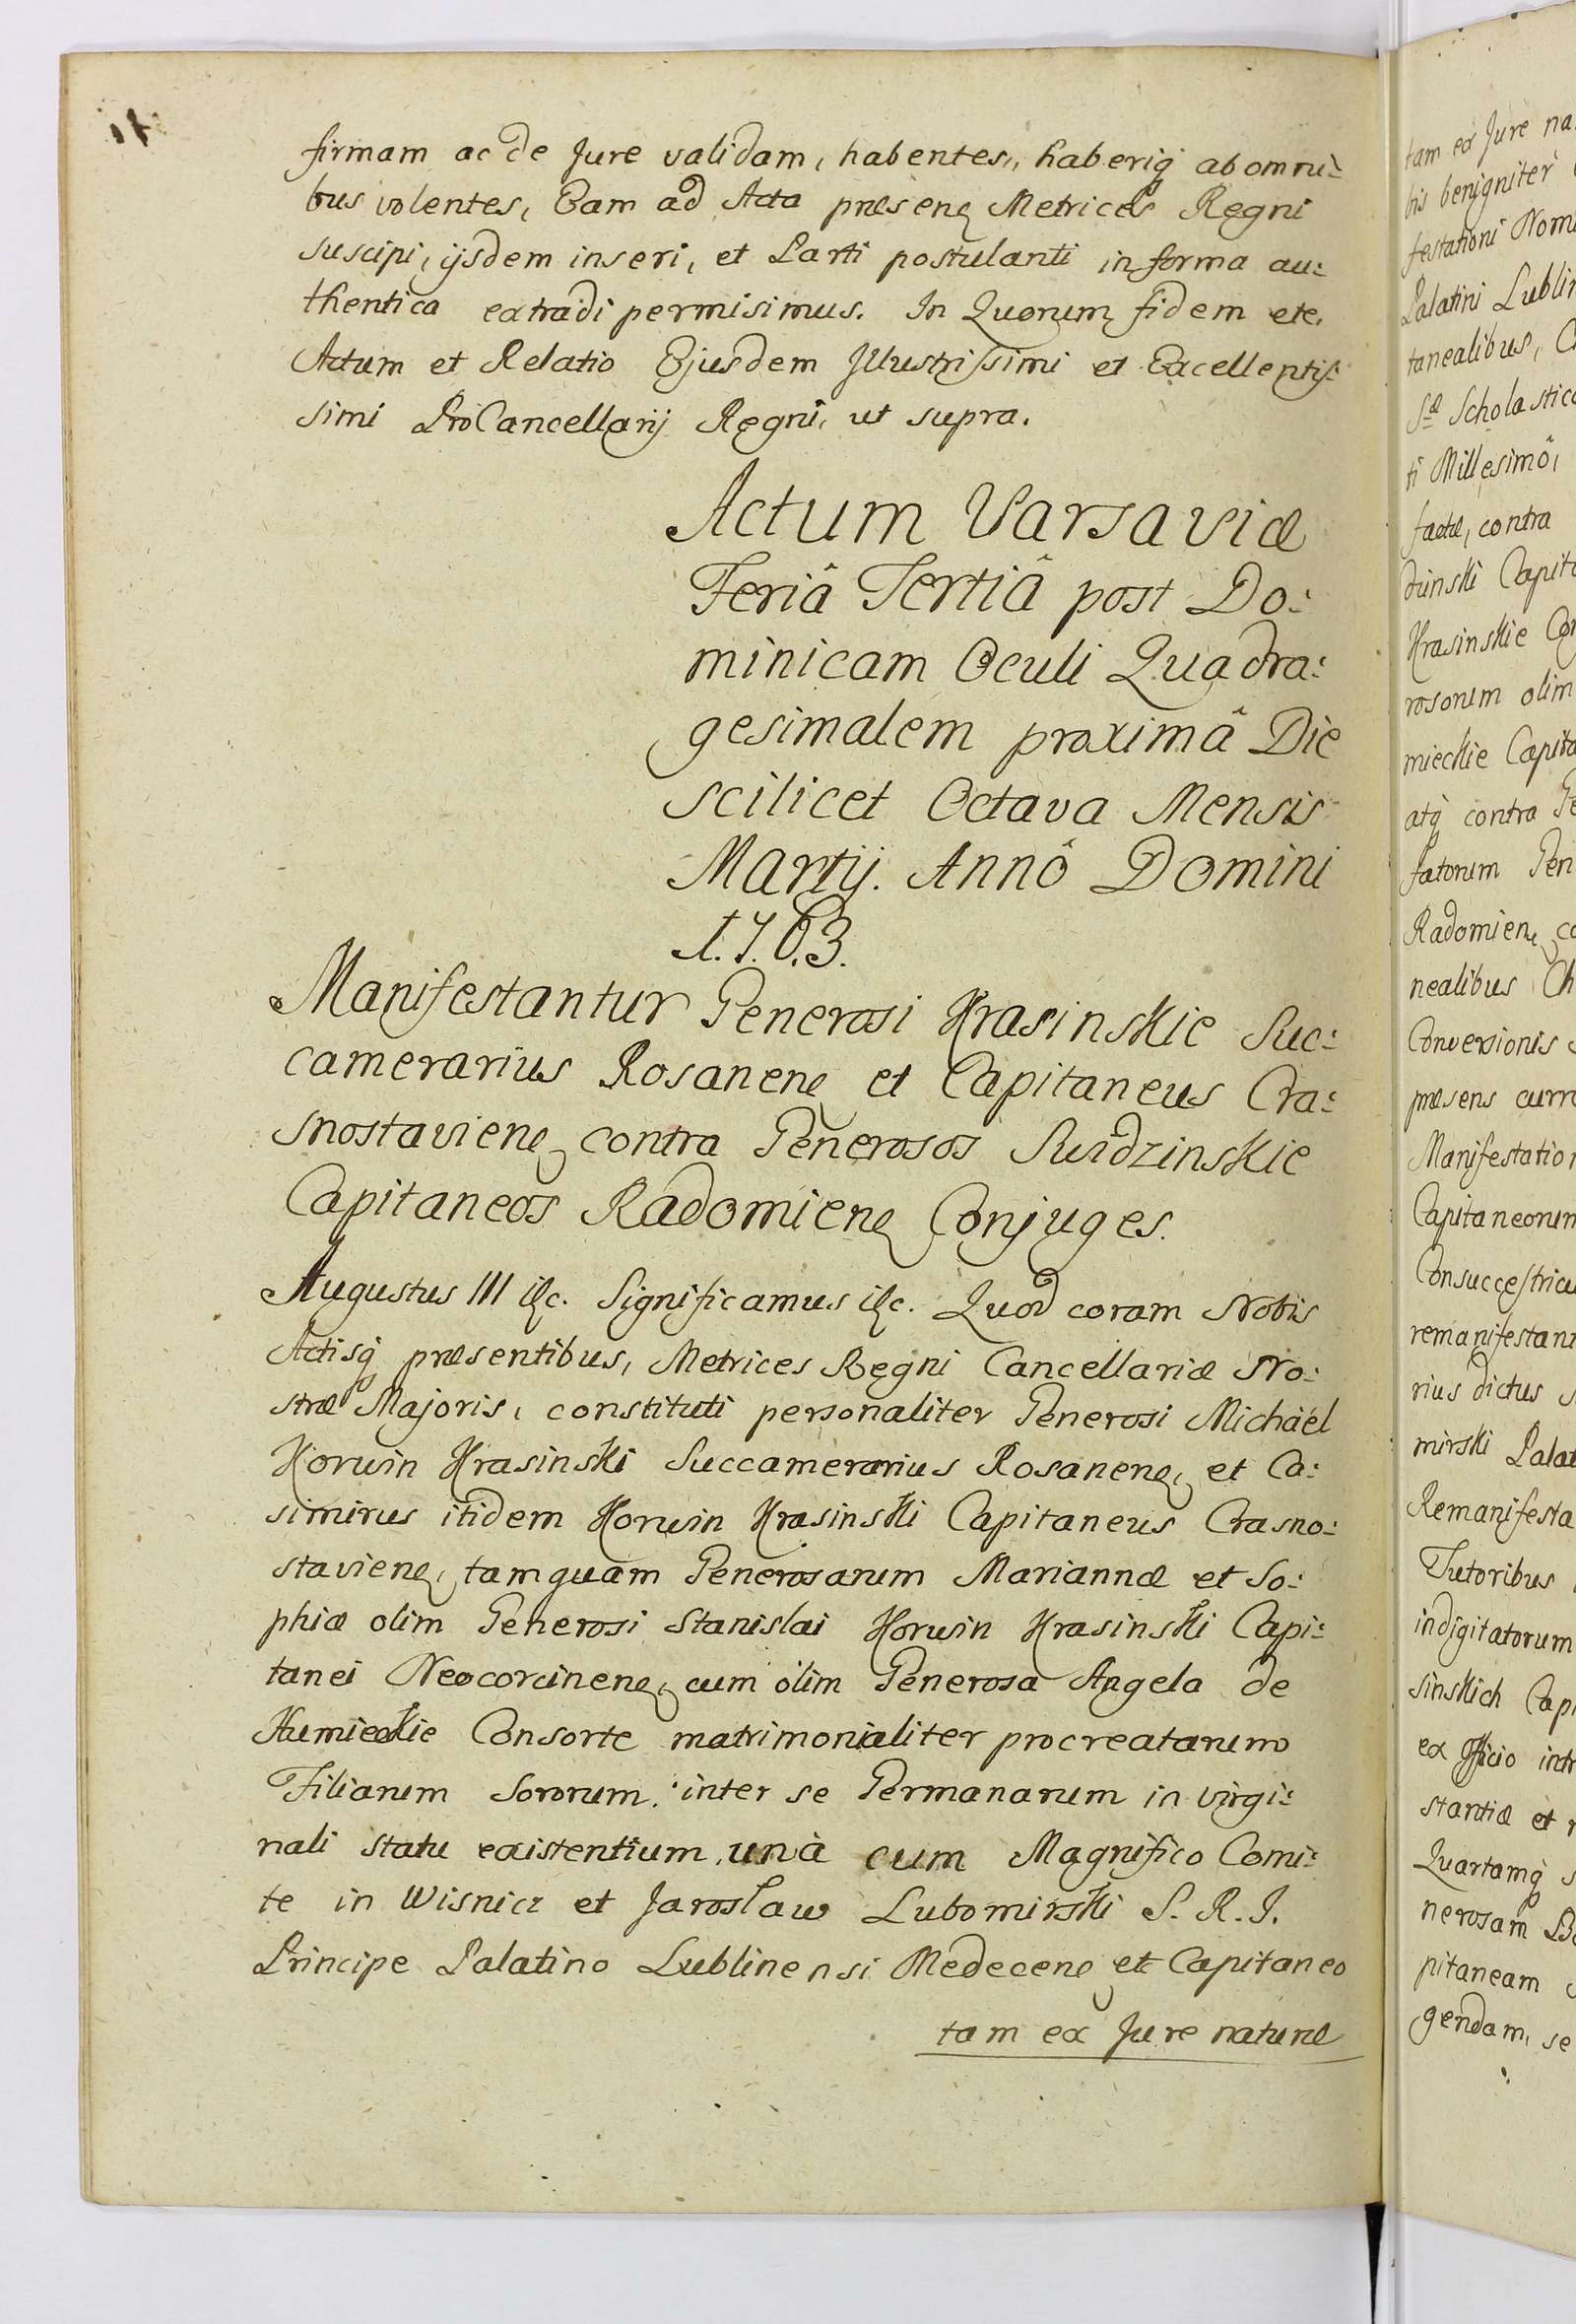 firmam ac de Jure validam, habentes, haberiq̃ ab omni:
bus volentes, Eam ad Acta præsenę Metrices Regni
suscipi, ijsdem inseri, et Parti postulanti in forma au:
thentica extradi permisimus. In Quorum fidem etc.
Actum et Relatio Ejusdem Illustrissimi et Excellentis:
simi ProCancellarij Regni, ut supra.
Actum Varsaviæ
Feriâ Tertiâ post Do:
minicam Oculi Quadra:
gesimalem proximâ Die
scilicet Octava Mensis
Martij. Annô Domini
1.7.6.3.
Manifestantur Generosi Krasinskie Suc:
camerarius Rosanenę et Capitaneus Cra:
snostavienę contra Generosos Swidzinskie
Capitaneos Radomienę Conjuges.
Augustus III etc. Significamus etc. Quod coram Nobis
Actisq̃ præsentibus, Metrices Regni Cancellariæ No:
stræ Majoris, constituti personaliter Generosi Michäel
Korwin Krasinski Succamerarius Rosanenę, et Ca:
simirus itidem Korwin Krasinski Capitaneus Crasno:
stavienę, tamquam Generosarum Mariannæ et So:
phiæ olim Generosi Stanislai Korwin Krasinski Capi:
tanei Neocorcinenę, cum olim Generosa Angela de
Humieckie Consorte matrimonialiter procreatarum
Filiarum Sororum inter se Germanarum in virgi:
nali statu existentium, unà cum Magnifico Comi:
te in Wisnicz et Jarosław Lubomirski S. R. I.
Principe Palatino Lublinensi Medecenę et Capitaneo
tam ex Jure naturæ
tam ex Jure na
bis benigniter
festationi Nom
Palatini Lublin
tanealibus, C
Sæ Scholastic
ti Millesimô,
factæ, contra
dzinski Capit
Krasinskie Co
rosorum olim
mieckie Capita
atq̃ contra Ge
fatorum Gen
Radomienę co
nealibus Ch
Conversionis
præsens curr
Manifestatio
Capitaneorum
Consuccestric
remanifestan
rius dictus
mirski Palat
Remanifesta
Tutoribus
indigitatorum
sinskich Cap
ex officio int
stantiæ et
Quartamq̃ s
nerosam B
pitaneam
gendam, se